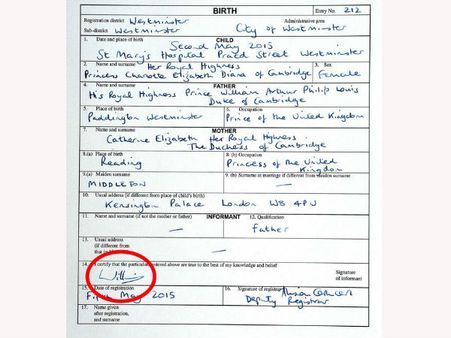 BIRTH
Entry No. 212
Registration district Westminster
Administrative area
Sub-district Westminster
City of Westminster
1. Date and place of birth
CHILD
Second May 2015
St Mary's Hospital Praed Street Westminster
2. Name and surname
3. Sex
Her Royal Highness
Princess Charlotte Elizabeth Diana of Cambridge
Female
4. Name and surname
FATHER
His Royal Highness Prince William Arthur Philip Louis
Duke of Cambridge
5. Place of birth
6. Occupation
Paddington Westminster
Prince of the United Kingdom
7. Name and surname
MOTHER
Catherine Elizabeth Her Royal Highness
The Duchess of Cambridge
8.(a) Place of birth
8.(b) Occupation
Reading
Princess of the United
Kingdom
9.(a) Maiden surname
9.(b) Surname at marriage if different from maiden surname
MIDDLETON
—
10. Usual address (if different from place of child's birth)
Kensington Palace London W8 4PU
11. Name and surname (if not the mother or father)
INFORMANT
12. Qualification
—
Father
13. Usual address
(if different from
that in
—
14. I certify that the particulars entered above are true to the best of my knowledge and belief
Signature
of informant
15. Date of registration
16. Signature of registrar
May 2015
Deputy Registrar
17. Name given
after registration,
and surname